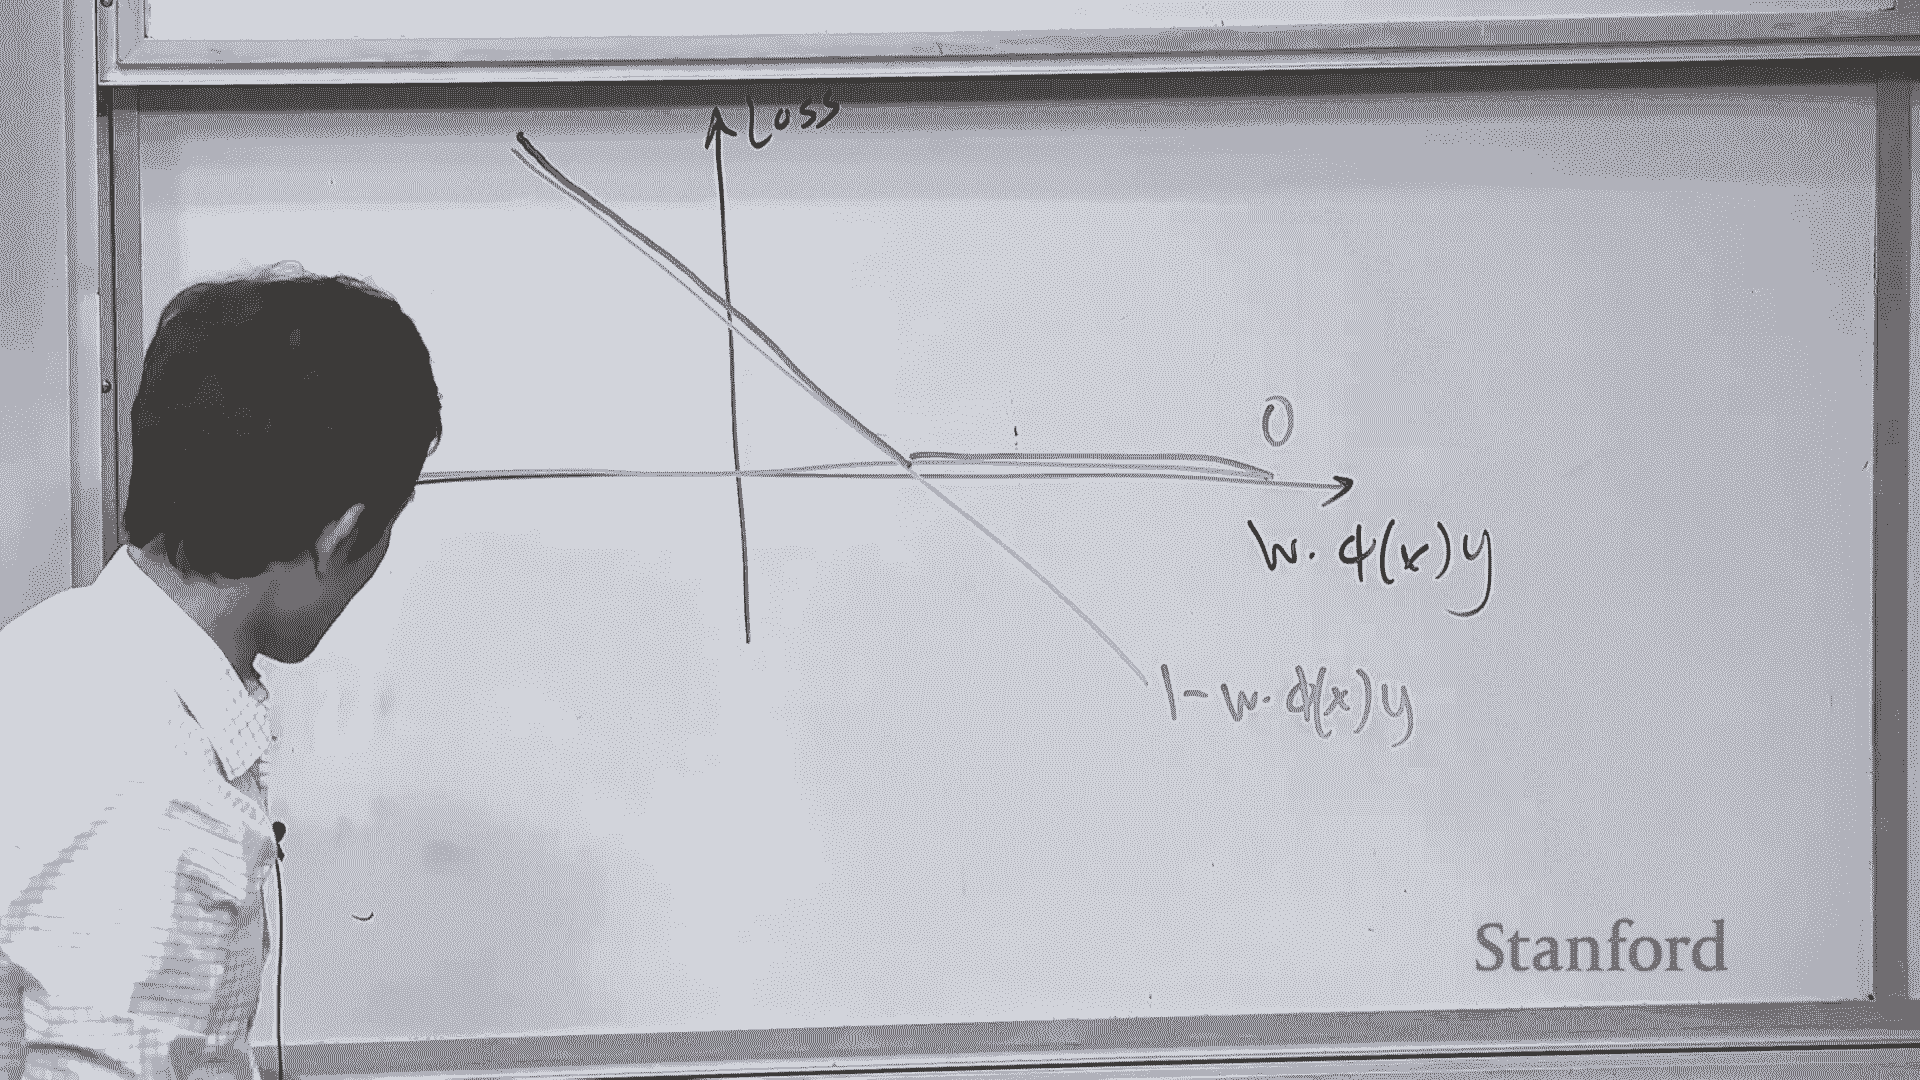 Loss
0
w · φ(x) y
1 - w · φ(x) y
Stanford